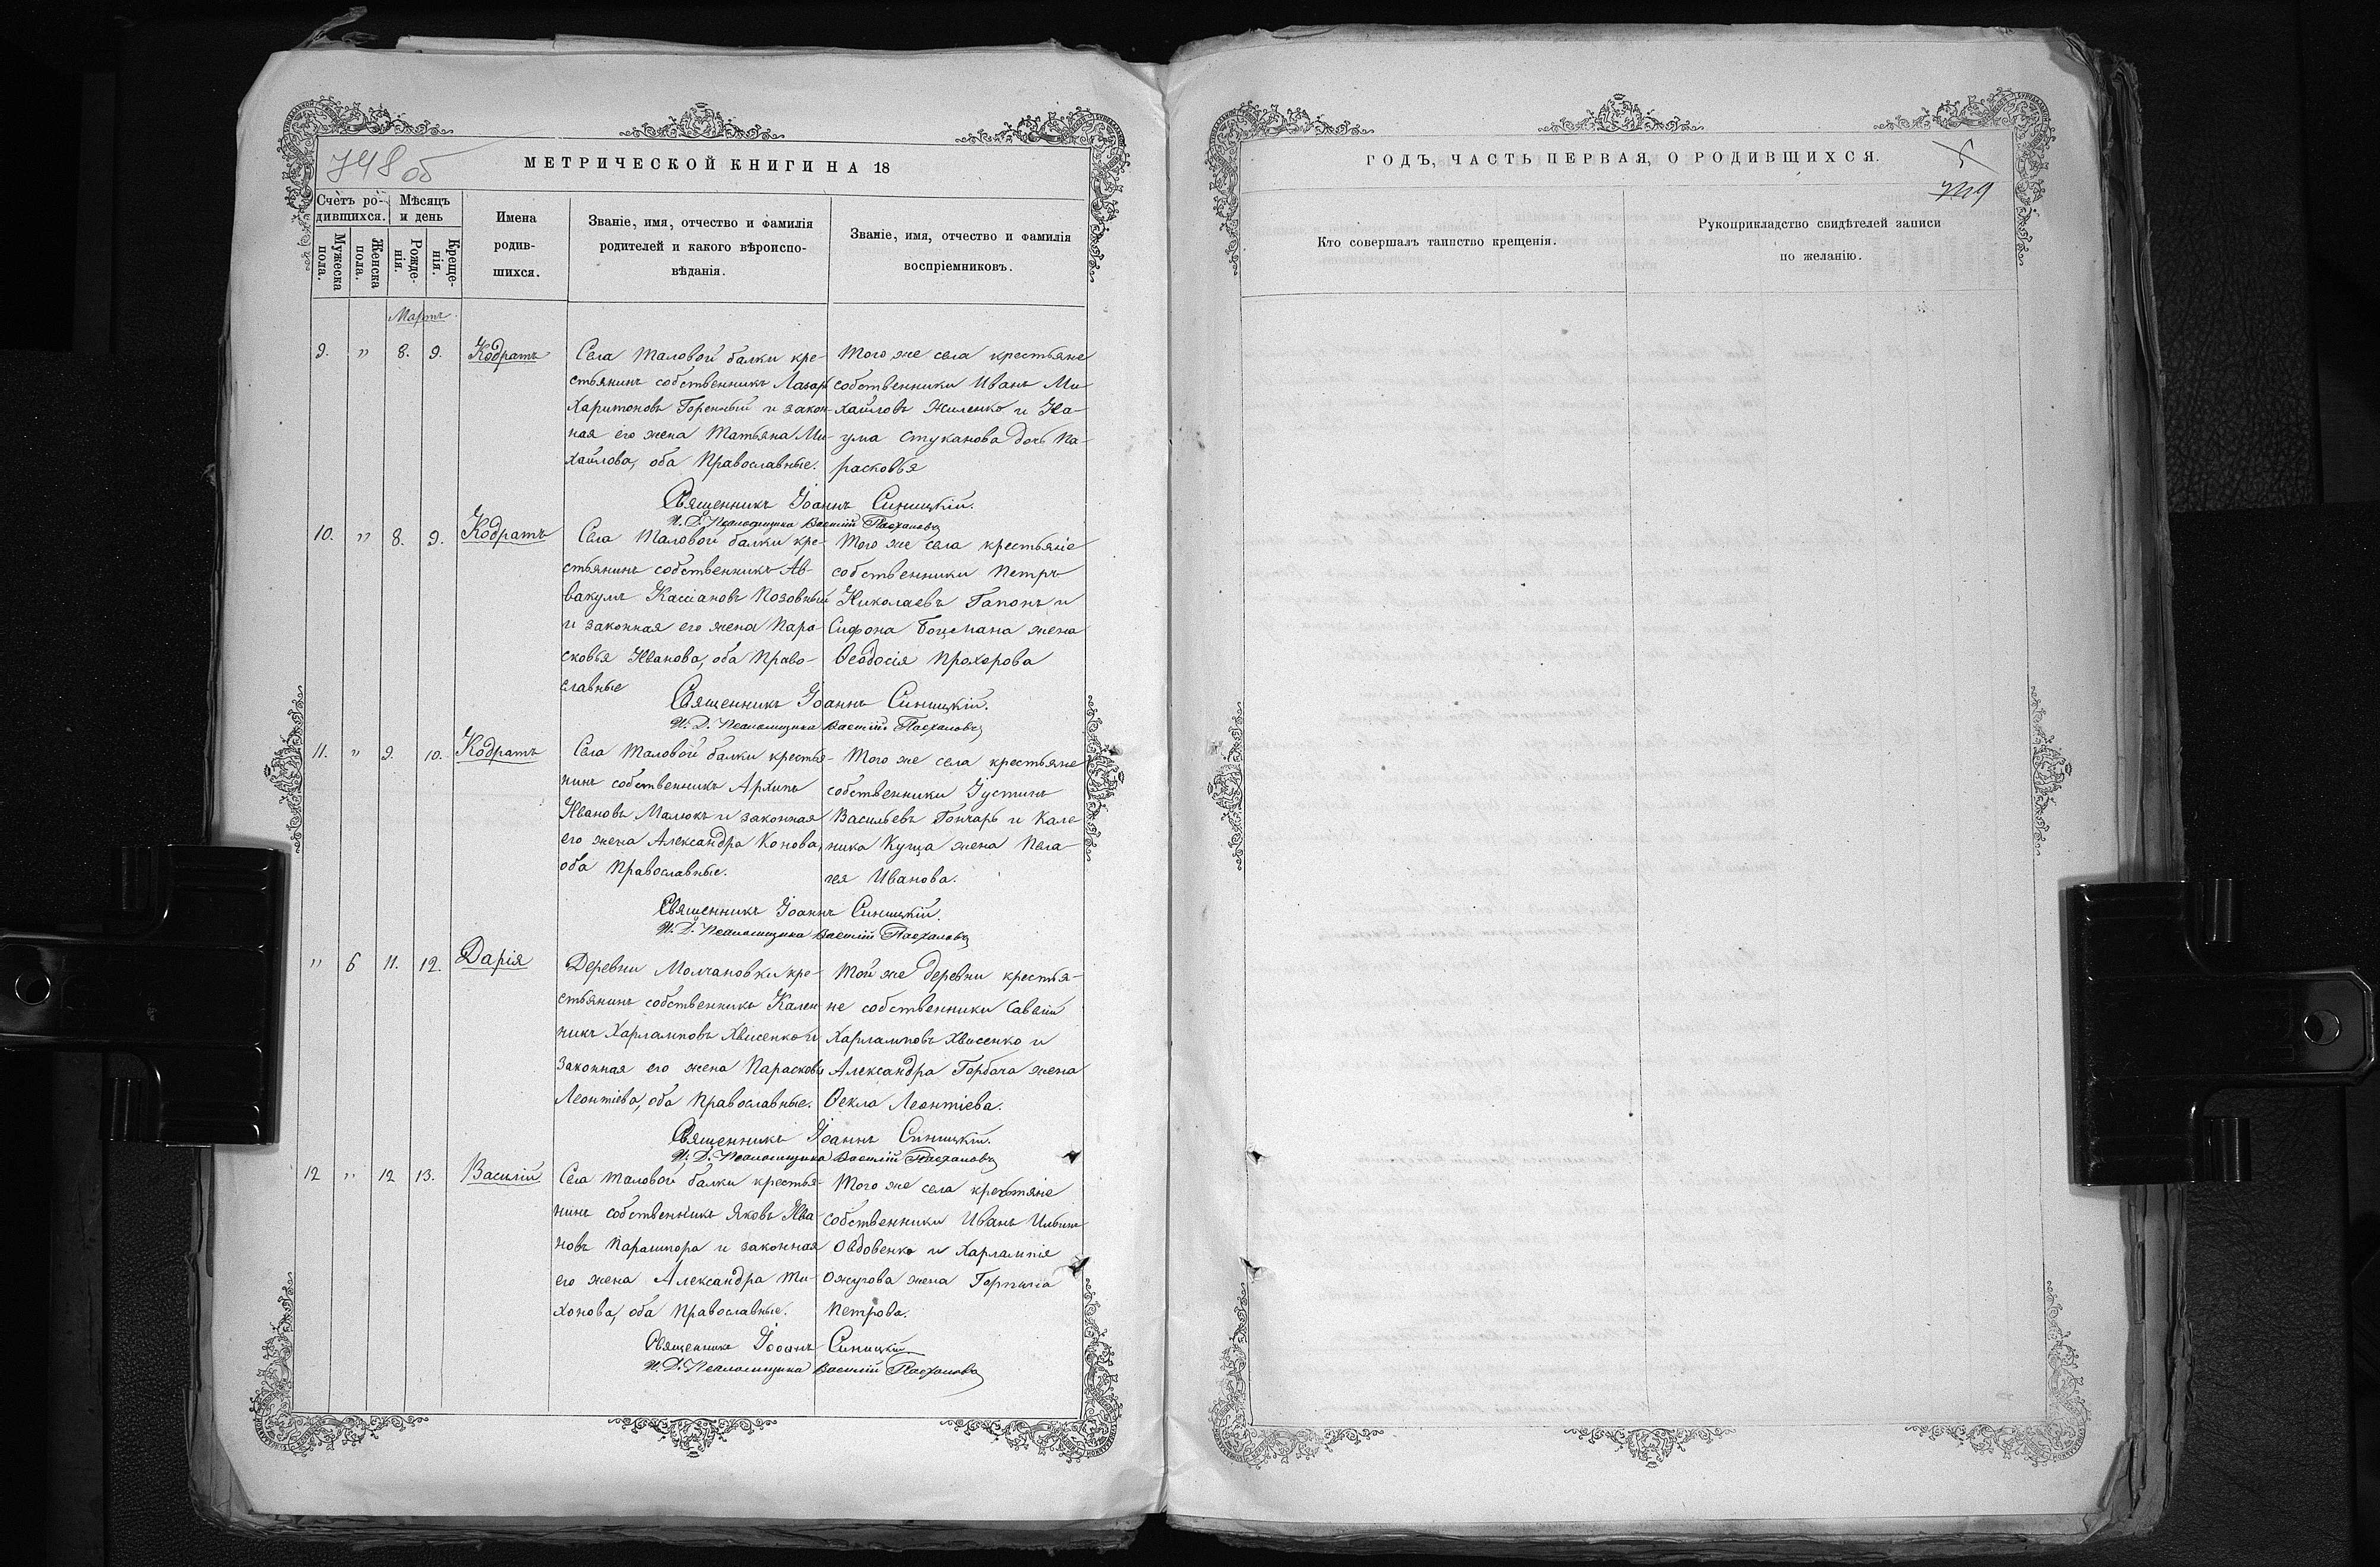 748 об
МЕТРИЧЕСКОЙ КНИГИ НА 18
Счетъ ро-
дившихся.
Мѣсяцъ
и день
Мужеска
пола.
Женска
пола.
Рожде-
нія.
Креще-
нія.
Имена
родив-
шихся.
Званіе, имя, отчество и фамилія
родителей и какого вѣроиспо-
вѣданія.
Званіе, имя, отчество и фамилія
воспріемниковъ.
Мартъ
9. " 8. 9. Кодратъ
Села Таловой балки кре-
стьянинъ собственникъ Лазарь
Харитоновъ Горенный и закон-
ная его жена Татьяна Ми-
хайлова, оба Православные.
Того же села крестьяне
собственники Иванъ Ми-
хайловъ Жиленко и На-
ума Стуканова дочь Па-
расковья
Священникъ Іоаннъ Синицкій.
И. Д. Псаломщика Василій Пасхаловъ
10. " 8. 9. Кодратъ
Села Таловой балки кре-
стьянинъ собственникъ Ав-
вакумъ Кассіановъ Позовный
и законная его жена Пара-
сковья Иванова, оба Право-
славные
Того же села крестьяне
собственники Петръ
Николаевъ Гапонъ и
Сифона Боцмана жена
Ѳеодосія Прохорова
Священникъ Іоаннъ Синицкій.
И. Д. Псаломщика Василій Пасхаловъ
11. " 9. 10. Кодратъ
Села Таловой балки крестья-
нинъ собственникъ Архипъ
Ивановъ Малюкъ и законная
его жена Александра Конова,
оба Православные.
Того же села крестьяне
собственники Іустинъ
Васильевъ Гончаръ и Кале-
ника Куща жена Пела-
гея Иванова.
Священникъ Іоаннъ Синицкій.
И. Д. Псаломщика Василій Пасхаловъ
" 6 11. 12. Дарія
Деревни Молчановки кре-
стьянинъ собственникъ Кален-
никъ Харламповъ Хвисенко и
законная его жена Параскова
Леонтіева, оба Православные.
Той же деревни крестья-
не собственники Савелій
Харламповъ Хвисенко и
Александра Горбача жена
Ѳекла Леонтіева.
Священникъ Іоаннъ Синицкій.
И. Д. Псаломщика Василій Пасхаловъ
12 " 12 13. Василій
Села Таловой балки крестья-
нинъ собственникъ Яковъ Ива-
новъ Парашпора и законная
его жена Александра Ти-
хонова, оба Православные.
Того же села крестьяне
собственники Иванъ
Овдовенко и Харлампія
Ожугова жена Горпина
Петрова.
Священникъ Іоаннъ Синицкій
И. Д. Псаломщика Василій Пасхаловъ
ГОДЪ, ЧАСТЬ ПЕРВАЯ, О РОДИВШИХСЯ.
5
749
Кто совершалъ таинство крещенія.
Рукоприкладство свидѣтелей записи
по желанію.